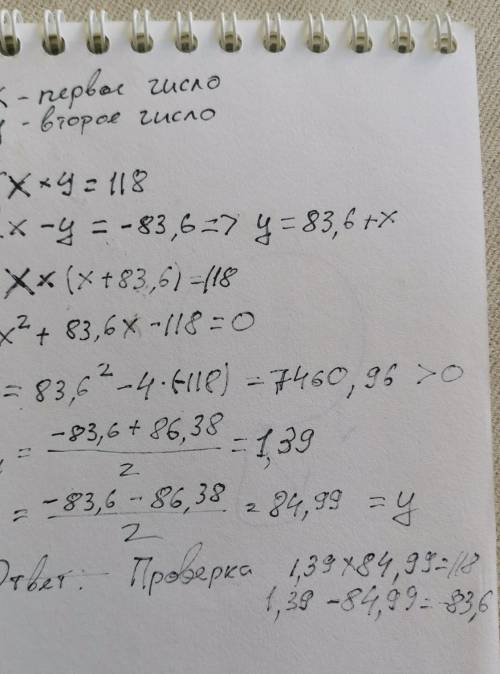 x - первое число
y - второе число
x × y = 118
x - y = -83,6 => y = 83,6 + x
x × (x + 83,6) = 118
x² + 83,6x - 118 = 0
= 83,6² - 4 · (-118) = 7460,96 > 0
= (-83,6 + 86,38) / 2 = 1,39
= (-83,6 - 86,38) / 2 = 84,99 = y
Ответ: Проверка 1,39 × 84,99 = 118
1,39 - 84,99 = -83,6